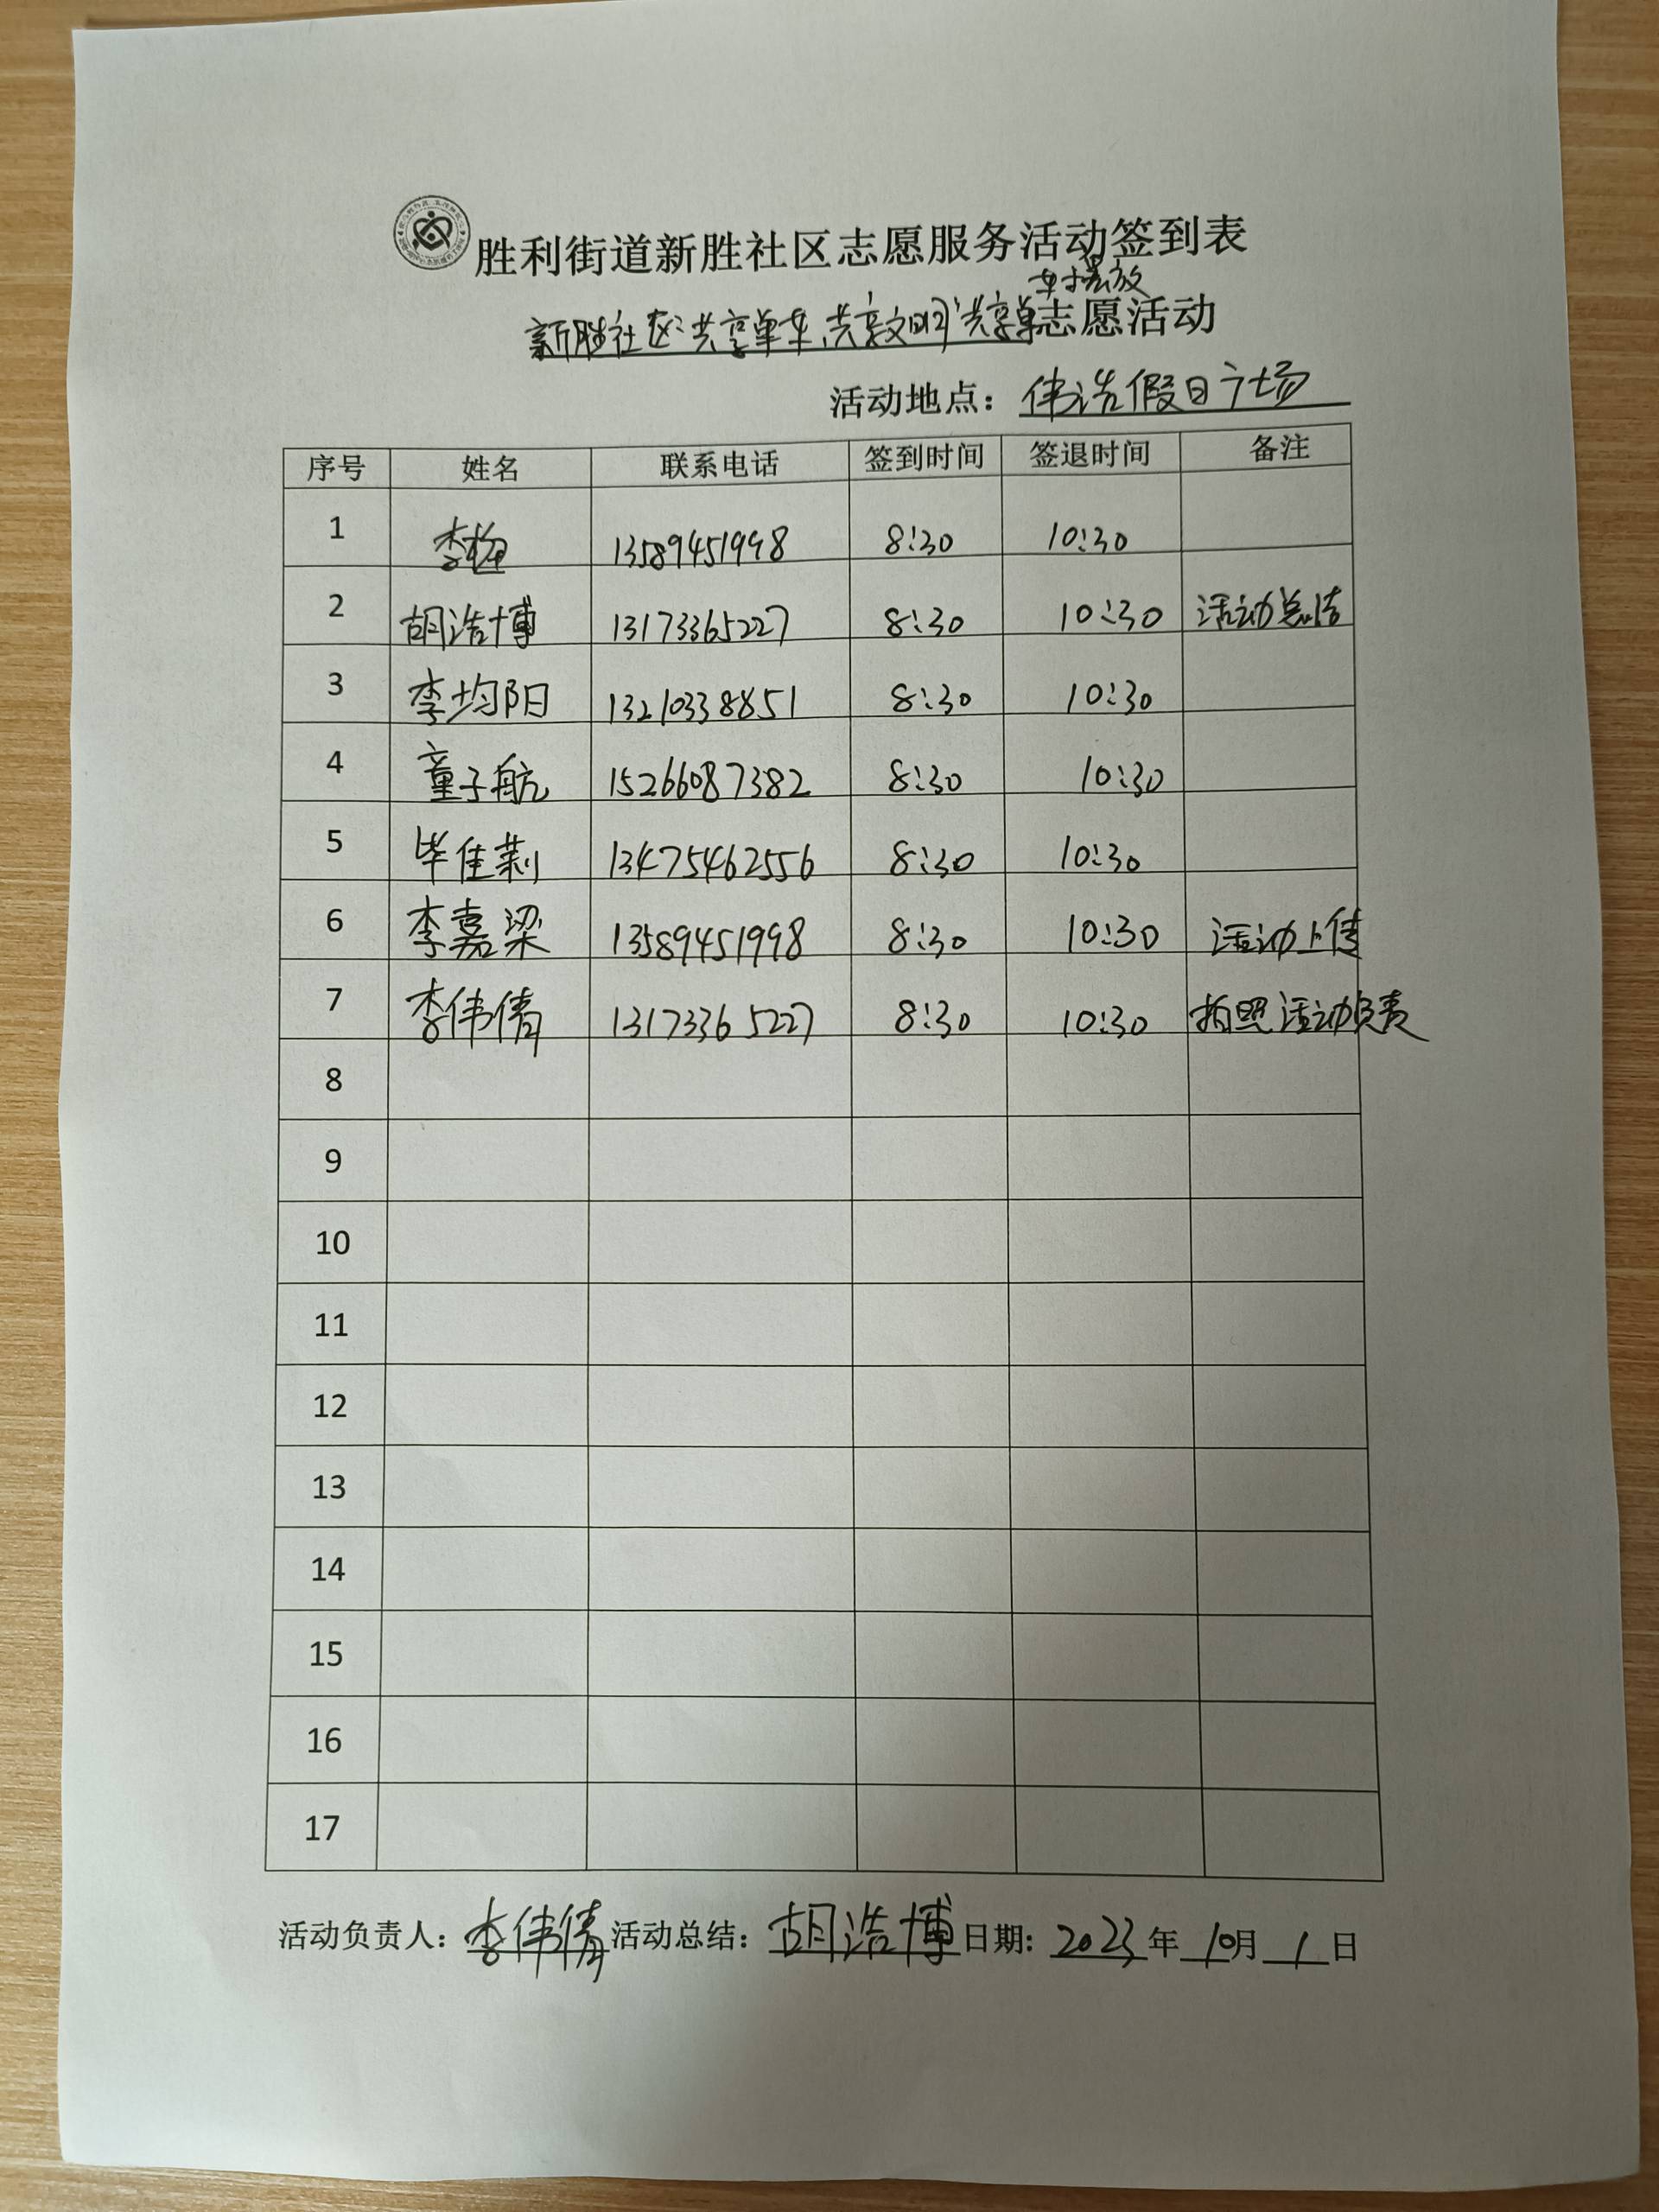 胜利街道新胜社区志愿服务活动签到表
车摆放
新胜社区“共享单车,共享文明”共享单志愿活动
活动地点：伟浩假日广场
序号 姓名 联系电话 签到时间 签退时间 备注
1 李 13589451998 8:30 10:30
2 胡浩博 13173365227 8:30 10:30 活动总结
3 李均阳 13210338851 8:30 10:30
4 童子航 15266087382 8:30 10:30
5 毕佳莉 13475462556 8:30 10:30
6 李嘉梁 13589451998 8:30 10:30 活动上传
7 李伟倩 13173365227 8:30 10:30 拍照活动负责
8
9
10
11
12
13
14
15
16
17
活动负责人：李伟倩 活动总结：胡浩博 日期：2023年10月1日